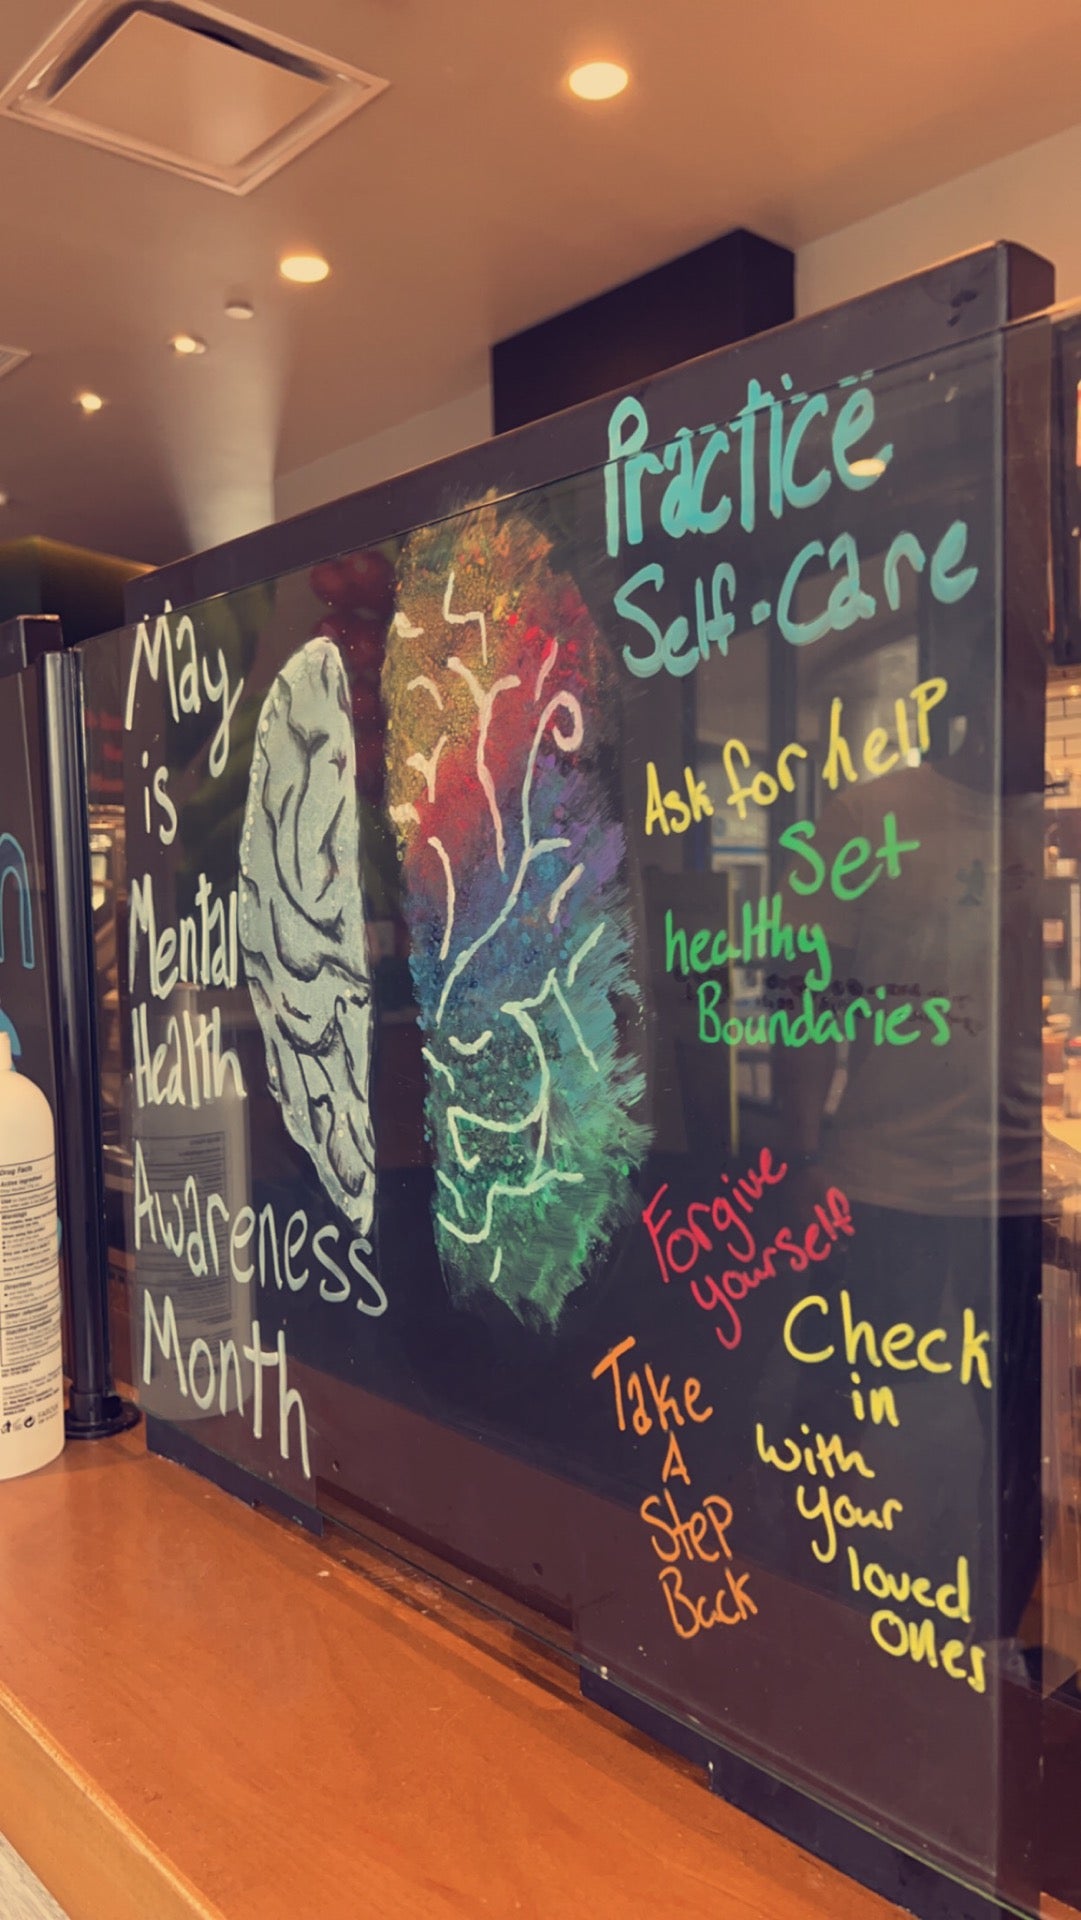 May
is
Mental
Health
Awareness
Month
Practice
Self-Care
Ask for help
Set
healthy
Boundaries
Forgive
yourself
Take
A
Step
Back
Check
in
with
your
loved
ones
Drug Facts